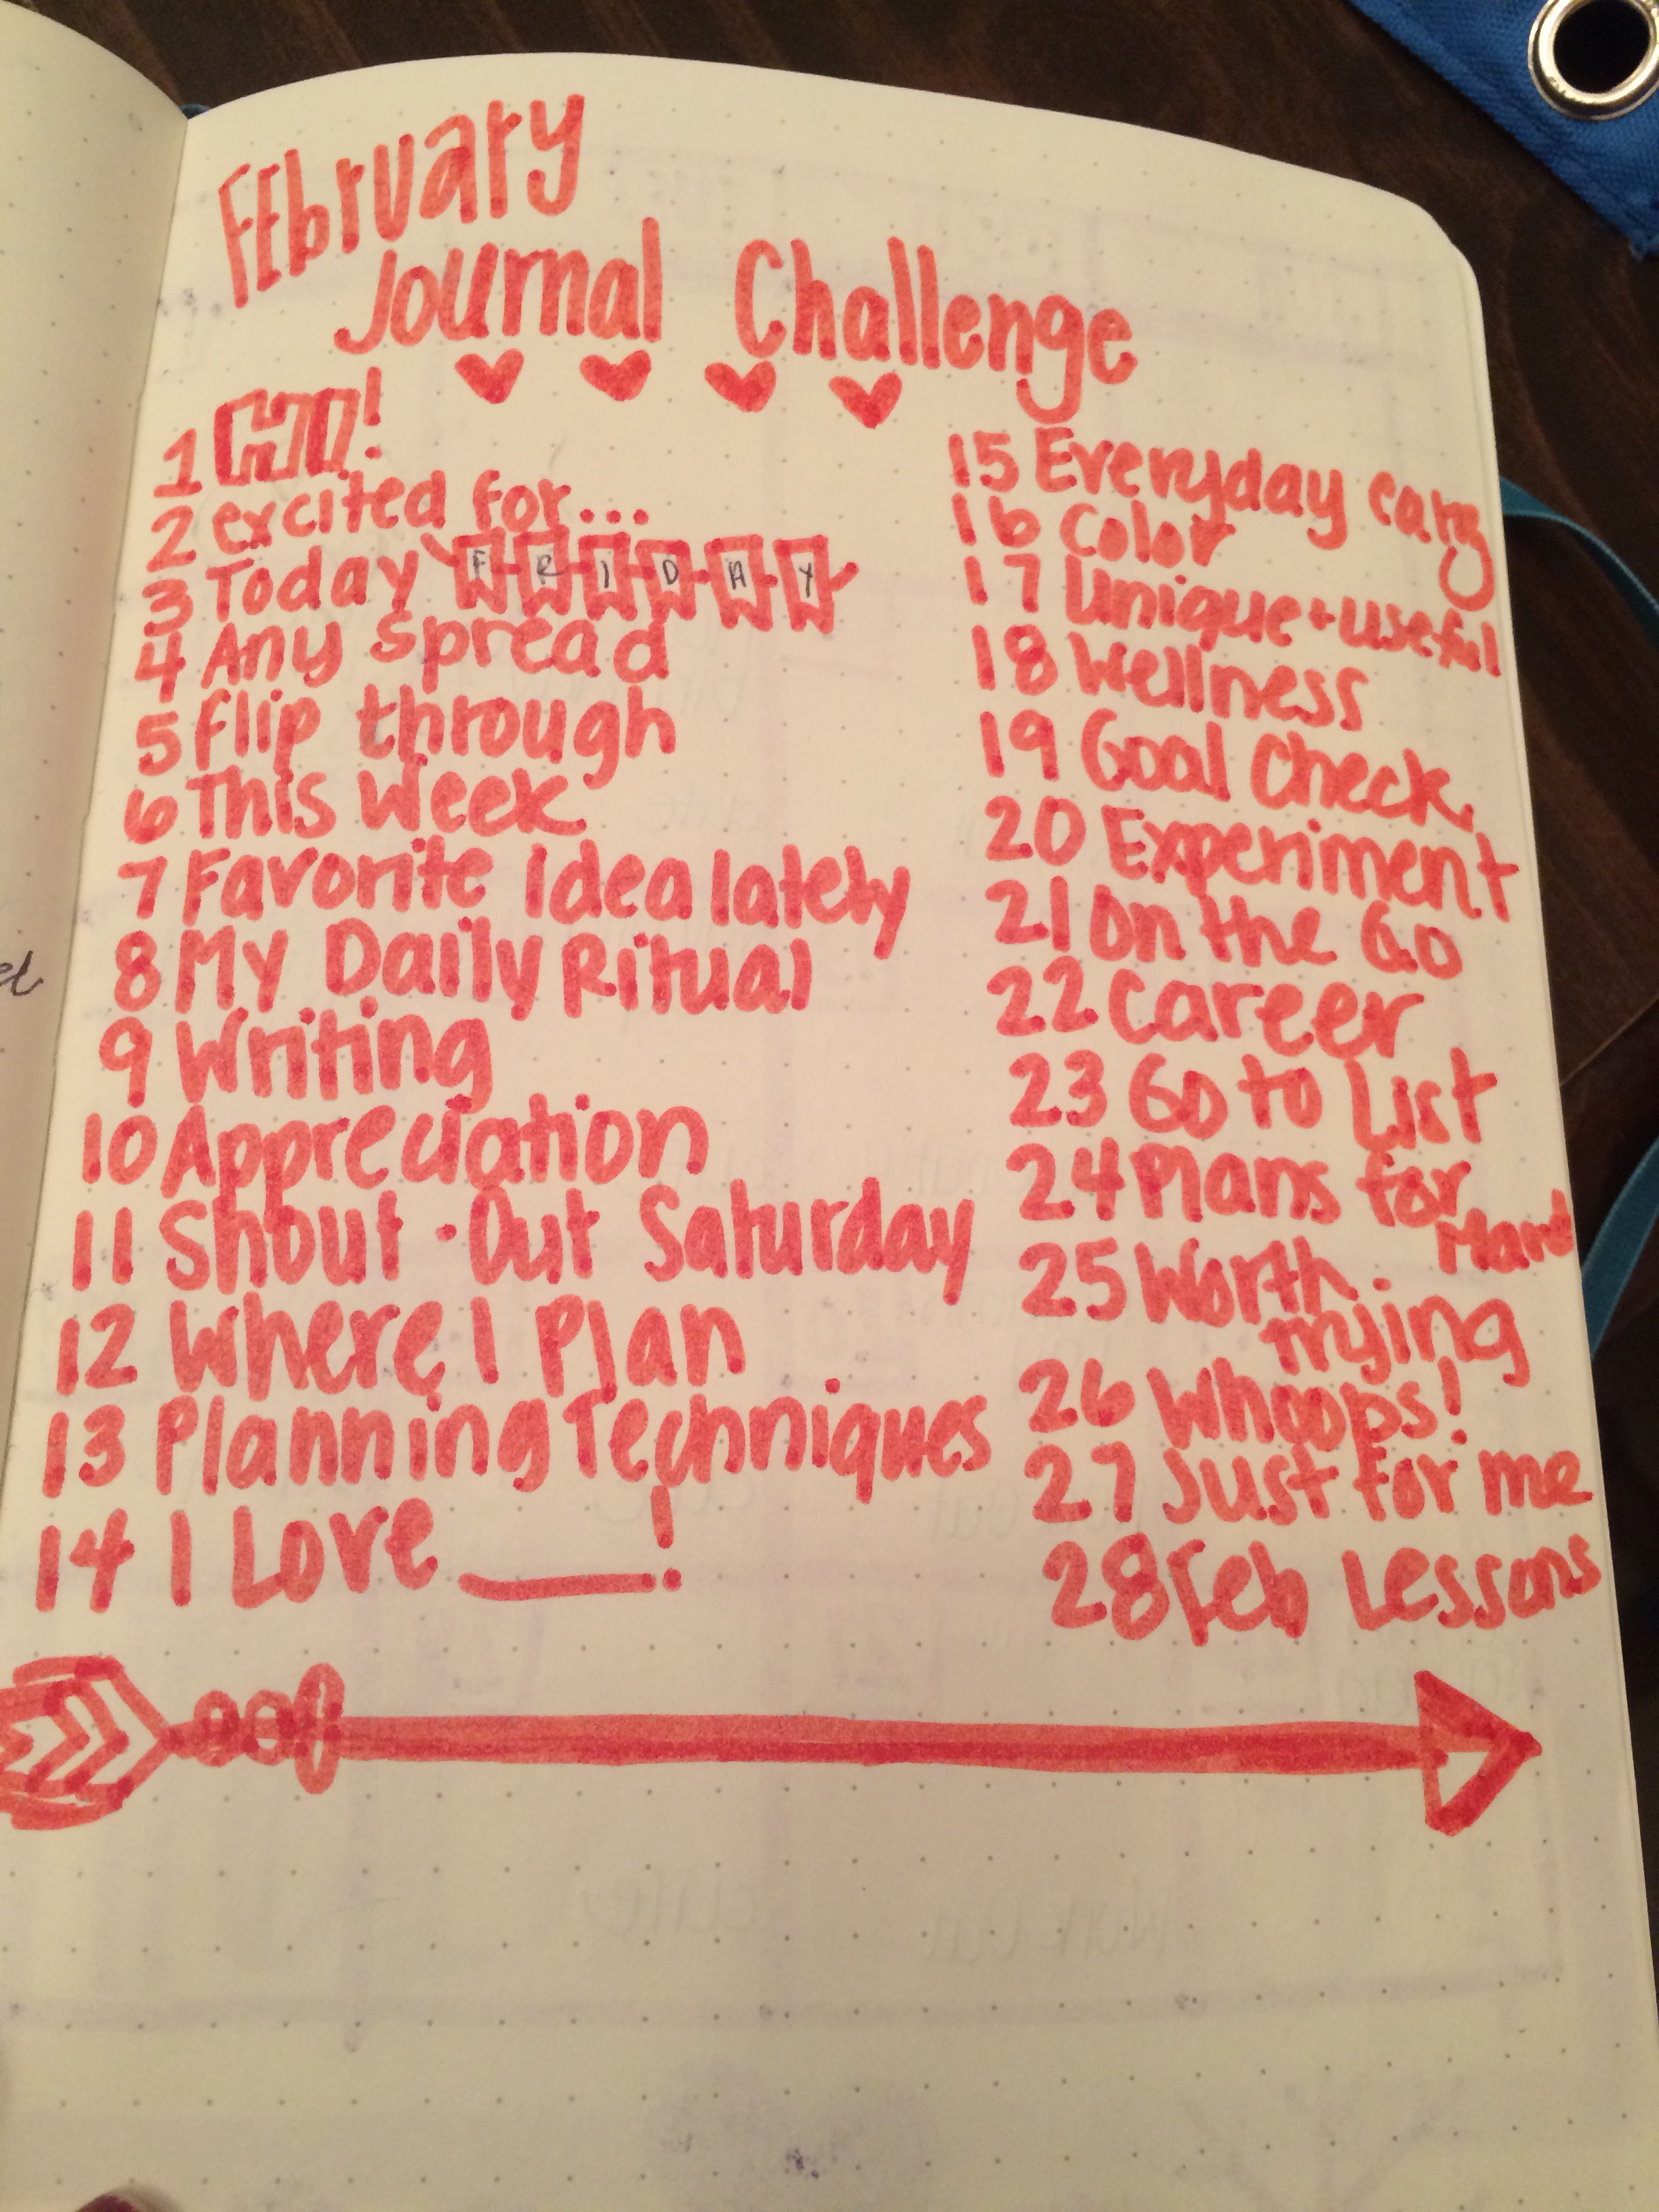 FEbruary
Journal Challenge
1 GO!
2 excited for...
3 Today FRIDAY
4 Any spread
5 flip through
6 This week
7 Favorite idea lately
8 My Daily Ritual
9 Writing
10 Appreciation
11 Shout-Out Saturday
12 Where I Plan
13 Planning Techniques
14 I Love ___!
15 Everyday carry
16 Color
17 Unique + useful
18 Wellness
19 Goal Check
20 Experiment
21 On the Go
22 Career
23 Go to List
24 Plans for
March
25 Worth
trying
26 Whoops!
27 Just for me
28 Feb Lessons